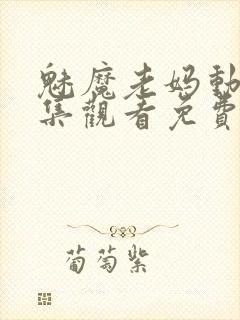 魅魔老妈動
集觀看免費
葡萄紫